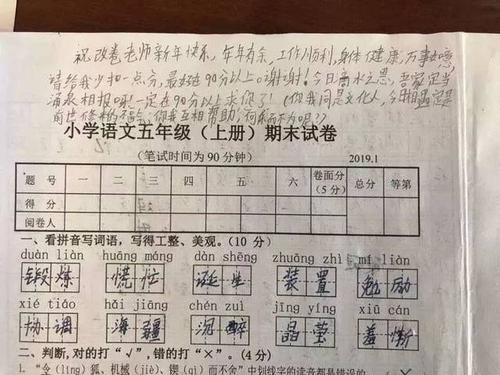 祝改卷老师新年快乐,年年有余,工作顺利,身体健康,万事如意
请给我少扣一点分,最好在90分以上。谢谢!今日滴水之恩,吾家定当
涌泉相报哦!一定在90分以上求您了!(你我同是文化人,今日相遇定是
前世修来的
你我互相帮助,何乐而不为呢?)
小学语文五年级(上册)期末试卷
(笔试时间为90分钟) 2019.1
题 号 一 二 三 四 五 六 卷面分(5分) 总分 等第
得 分
阅卷人
一、看拼音写词语,写得工整、美观。(10 分)
duàn liàn huāng máng dàn shēng zhuāng zhì mǐ liàn
锻炼 慌忙 诞生 装置 勉励
xié tiáo hǎi jiāng chén zuì jīng yíng xiū cán
协调 海疆 沉醉 晶莹 羞惭
二、判断,对的打“√”,错的打“×”。(4分)
1. “令(líng)狐、机械(jiè)、锲(qì)而不舍”中划线字的读音都是错误的。